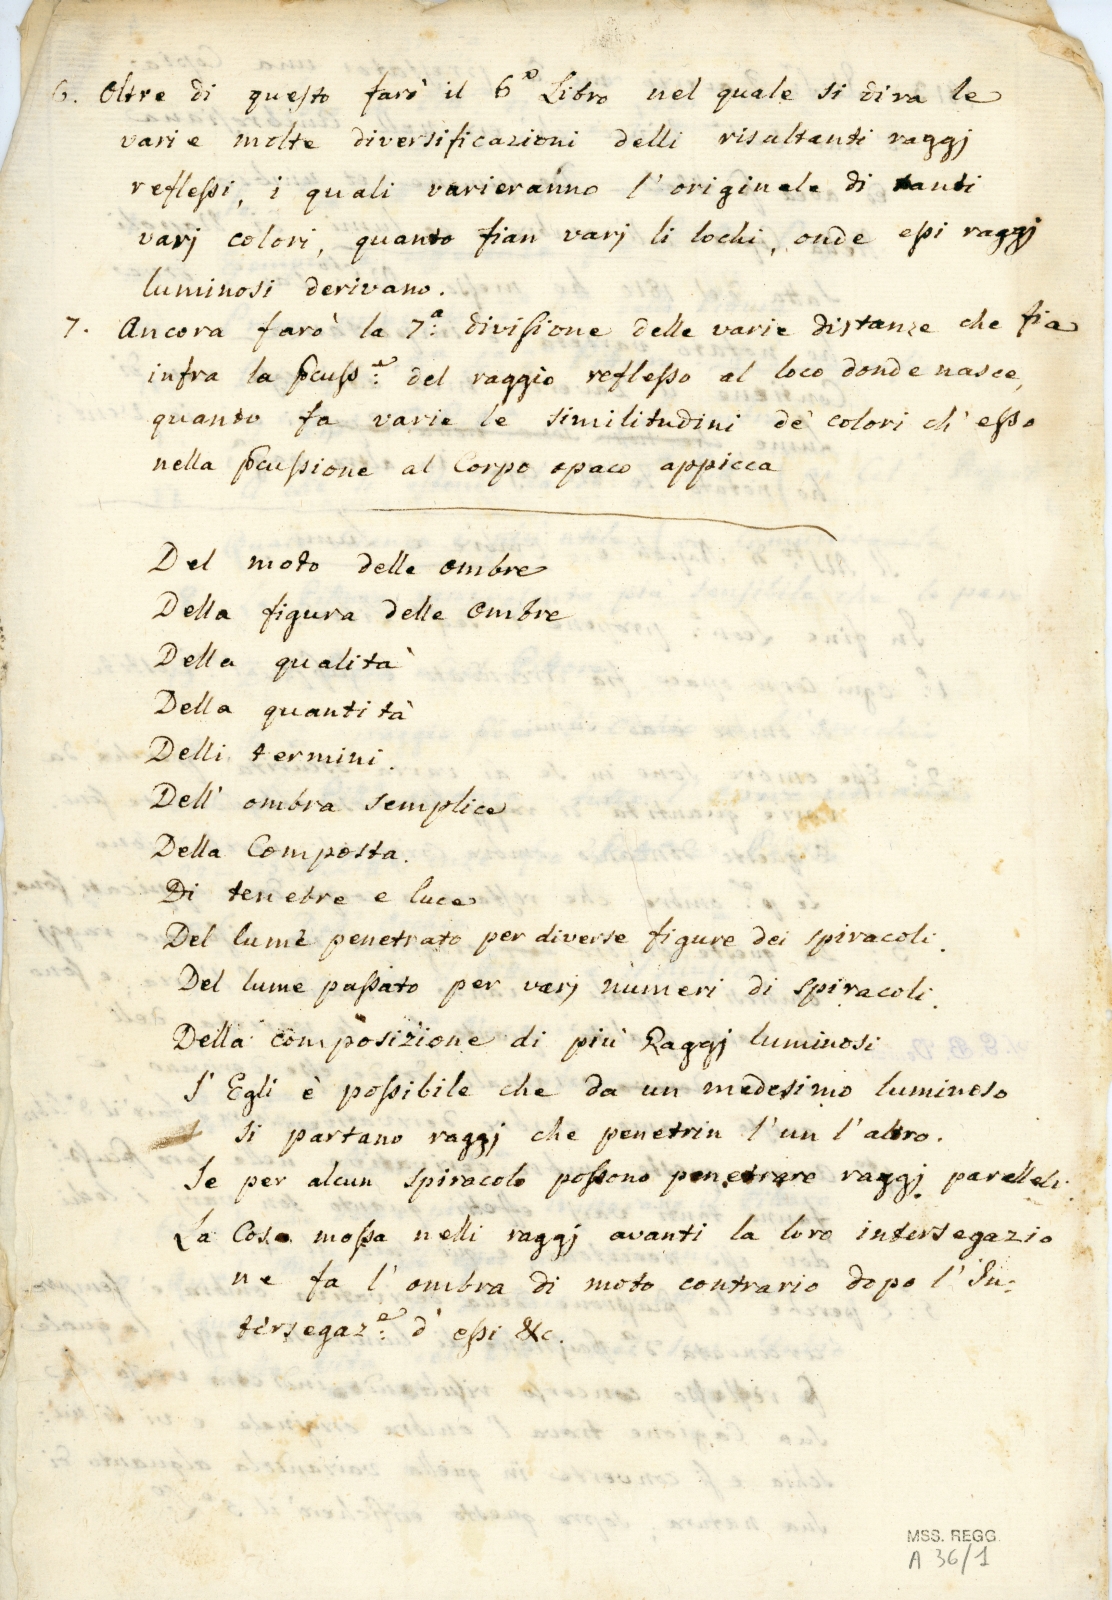 6. Oltre di questo farò il 6º Libro nel quale si dira le
varie molte diversificazioni delli risultanti raggj
reflessi, i quali varieranno l'originale di tanti
varj colori, quanto fian varj li lochi, onde essi raggj
luminosi derivano.
7. Ancora farò la 7ª: divisione delle varie distanze che fia
infra la pcussᵉ: del raggio reflesso al loco donde nasce,
quanto fa varie le similitudini de' colori ch'esso
nella pcussione al Corpo opaco appicca
Del moto delle ombre
Della figura delle ombre
Della qualità
Della quantità
Delli termini.
Dell'ombra semplice
Della Composta.
Di tenebre e luce
Del lume penetrato per diverse figure dei spiracoli.
Del lume passato per varj numeri di spiracoli.
Della composizione di più Raggj luminosi
S'Egli è possibile che da un medesimo luminoso
si partano raggj che penetrin l'un l'altro.
Se per alcun spiracolo possono penetrare raggj paralleli.
La Cosa mossa nelli raggj avanti la loro intersegazio
ne fa l'ombra di moto contrario dopo l'In:
tersegazᵉ: d'essi &c.
MSS. REGG.
A 36/1